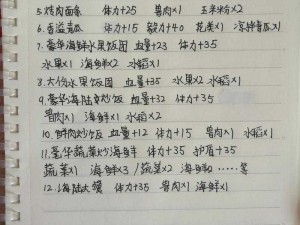 5.烤肉面条 体力+25 兽肉×1 玉米粉×2
6.香溢青瓜 体力+15 毅力+40 花类×1 凉拌青瓜×1
7.豪华海鲜水果饭团 血量+23 体力+35
水果×1 海鲜×2 水稻×1
8.大份水果饭团 血量+35 水果×2 水稻×1
9.豪华海陆炒饭 血量+32 体力+35
兽肉×1 海鲜×2 水稻×1
10.鲜肉炒饭 血量+12 体力+15 兽肉×1 水稻×1
11.豪华蔬菜炒海鲜 体力+35 护盾+35
蔬菜×1 海鲜×3 /蔬菜×2 海鲜×2 ……等
12.海陆大餐 体力+35 兽肉×1 海鲜×1